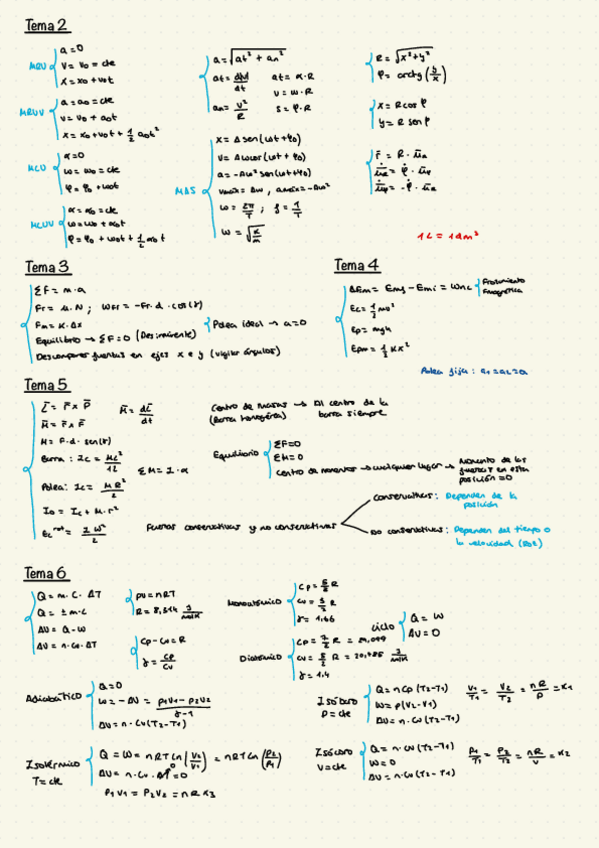 Tema 2
MRU
a = 0
v = v₀ = cte
x = x₀ + v₀t
MRUV
a = a₀ = cte
v = v₀ + a₀t
x = x₀ + v₀t + 1/2 a₀t²
MCU
α = 0
ω = ω₀ = cte
φ = φ₀ + ω₀t
MCUV
α = α₀ = cte
ω = ω₀ + α₀t
φ = φ₀ + ω₀t + 1/2 α₀t
a = √(at² + an²)
at = d|v|/dt   at = α·R
v = ω·R
an = v²/R   s = φ·R
MAS
x = A sen(ωt + φ₀)
v = Aωcos(ωt + φ₀)
a = -Aω² sen(ωt + φ₀)
vmáx = Aω, amáx = -Aω²
ω = 2π/T ; f = 1/T
ω = √(k/m)
R = √(x² + y²)
φ = arctg(y/x)
x = R cos φ
y = R sen φ
r̄ = R · ūr
1L = 1dm³
Tema 3
ΣF = m·a
Fr = μ·N ; WFr = -Fr·d·cos(γ)
Fm = K·Δx
Equilibrio → ΣF = 0
Polea ideal → a = 0
Descomponer fuerzas en ejes x e y (vigilar ángulos)
Tema 4
ΔEm = Emf - Emi = Wnc
Rozamiento
Ec = 1/2 mv²
Ep = mgh
Epm = 1/2 Kx²
Polea fija: a₁ = a₂ = a
Tema 5
L̄ = r̄ x P̄
M̄ = dL̄/dt
M̄ = r̄ x F̄
M = F·d·sen(γ)
Barra: Ic = ML²/12
ΣM = I·α
Polea: Ic = MR²/2
I₀ = Ic + M·r²
Ec rot = Iω²/2
Centro de masas → Al centro de la
(Barra homogénea) barra siempre
Equilibrio
ΣF = 0
ΣM = 0
centro de momentos → cualquier lugar → Momento de las
fuerzas en esta
posición = 0
Fuerzas conservativas y no conservativas
conservativas: Dependen de la
posición
no conservativas: Dependen del tiempo o
la velocidad
Tema 6
Q = m·c·ΔT
Q = ±m·L
ΔU = Q - W
ΔU = n·cv·ΔT
pV = nRT
R = 8,314 J/molK
Cp - Cv = R
γ = Cp/Cv
Monoatómico
Cp = 5/2 R
Cv = 3/2 R
γ = 1,66
Diatómico
Cp = 7/2 R = 29,099
Cv = 5/2 R = 20,785 J/molK
γ = 1,4
Ciclo
Q = W
ΔU = 0
Adiabático
Q = 0
W = -ΔU = (P₁V₁ - P₂V₂)/(γ-1)
ΔU = n·cv(T₂-T₁)
Isóbaro
P = cte
Q = nCp(T₂-T₁)
W = P(V₂-V₁)
ΔU = n·cv(T₂-T₁)
V₁/T₁ = V₂/T₂ = nR/P = K₁
Isotérmico
T = cte
Q = W = nRT Ln(V₂/V₁) = nRT Ln(P₂/P₁)
ΔU = n·cv·ΔT⁰ = 0
P₁V₁ = P₂V₂ = nRK₃
Isócoro
V = cte
Q = n·cv(T₂-T₁)
W = 0
ΔU = n·cv(T₂-T₁)
P₁/T₁ = P₂/T₂ = nR/V = K₂